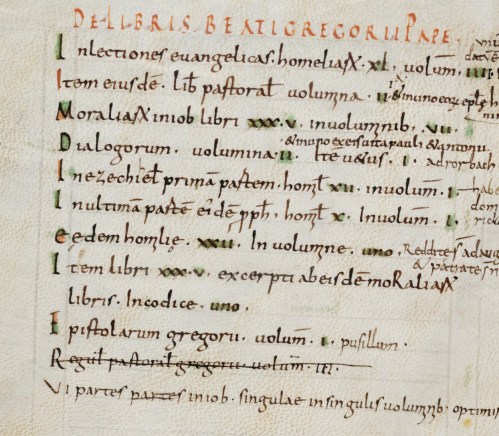 DE LIBRIS BEATI GREGORII PAPE
In lectiones evangelicas. homeliaꝝ. xl. volum̄. IIII.
Item eiusdē. lib̄ pastoral̄ volumina. II. & in uno eoꝝ epl̄ę
Moraliaꝝ in iob libri xxx.v. in voluminib. VII.
& in uno ex eis vita pauli & antonii
Dialogorum. volumina. II. Itē vetus. I. ad rorbach
In ezechiel̄ primam partem. homl̄ xii. in volum̄. I.
In ultimam partē eiꝰdē ꝓph̄. homl̄ x. In volum̄. I.
Eędem homl̄ię. xxii. In volumine. uno. Reddite st̄ ad aug
& patratę sn̄
Item libri xxx.v. excerpti ab eisdē moraliaꝝ
libris. In codice. uno.
Epistolarum gregorii. volum̄. I. pusillum.
Regul̄ pastoral̄ gregorii. volum̄. III.
VI partes partes in iob. singulae in singulis voluminb. optimis